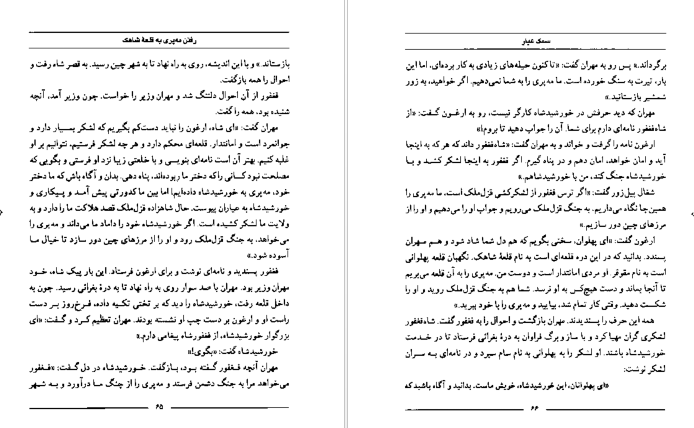 رفتن مه‌پری به قلعهٔ شاهک
بازستاند.» و با این اندیشه، روی به راه نهاد تا به شهر چین رسید. به قصر شاه رفت و
احوال را همه بازگفت.
فغفور از آن احوال دلتنگ شد و مهران وزیر را خواست. چون وزیر آمد، آنچه
شنیده بود، همه را گفت.
مهران گفت: «ای شاه، ارغون را نباید دست‌کم بگیریم که لشکر بسیار دارد و
جوانمرد است و امانتدار. قلعه‌ای محکم دارد و هر چه لشکر فرستیم، نتوانیم بر او
غلبه کنیم. بهتر آن است نامه‌ای بنویسی و با خلعتی زیبا نزد او فرستی و بگویی که
مصلحت نبود کسانی را که دختر ما ربوده‌اند، پناه دهی. بدان و آگاه باش که ما دختر
خود، مه‌پری به خورشیدشاه داده‌ایم؛ اما بین ما کدورتی پیش آمد و پیکاری و
خورشیدشاه به عیاران پیوست. حال شاهزاده قزل‌ملک قصد هلاکت ما را دارد و به
ولایت ما لشکر کشیده است. اگر خورشیدشاه خود را داماد ما می‌داند و مه‌پری را
می‌خواهد، به جنگ قزل‌ملک رود و او را از مرزهای چین دور سازد تا خیال ما
آسوده شود.»
فغفور پسندید و نامه‌ای نوشت و برای ارغون فرستاد. این بار پیک شاه، خود
مهران وزیر بود. مهران با صد سوار روی به راه نهاد تا به درهٔ بغرائی رسید. چون به
داخل قلعه رفت، خورشیدشاه را دید که بر تختی تکیه داده، فرخ‌روز بر دست
راست او و ارغون بر دست چپ او نشسته بودند. مهران تعظیم کرد و گفت: «ای
بزرگوار خورشیدشاه، از فغفورشاه پیغامی دارم.»
خورشیدشاه گفت: «بگوی!»
مهران آنچه فغفور گفته بود، بازگفت. خورشیدشاه در دل گفت: «فغفور
می‌خواهد مرا به جنگ دشمن فرستد و مه‌پری را از چنگ ما درآورد و به شهر
۶۵
سمک عیار
برگرداند.» پس رو به مهران گفت: «تاکنون حیله‌های زیادی به کار برده‌ای، اما این
بار، تیرت به سنگ خورده است. ما مه‌پری را به شما نمی‌دهیم. اگر خواهید، به زور
شمشیر بازستانید.»
مهران که دید حرفش در خورشیدشاه کارگر نیست، رو به ارغون گفت: «از
شاه‌فغفور نامه‌ای دارم برای شما. آن را جواب دهید تا بروم!»
ارغون نامه را گرفت و خواند و به مهران گفت: «شاه‌فغفور داند که هر که به اینجا
آید و امان خواهد، امان دهم و در پناه گیرم. اگر فغفور به اینجا لشکر کشید و با
خورشیدشاه جنگ کند، من با خورشیدشاهم.»
شغال پیل‌زور گفت: «اگر ترس فغفور از لشکرکشی قزل‌ملک است، ما مه‌پری را
همین‌جا نگاه می‌داریم. به جنگ قزل‌ملک می‌رویم و جواب او را می‌دهیم و او را از
مرزهای چین دور سازیم.»
ارغون گفت: «ای پهلوان، سخنی بگویم که هم دل شما شاد شود و هم مهران
پسندد. بدانید که در این دره قلعه‌ای است به نام قلعهٔ شاهک. نگهبان قلعه پهلوانی
است به نام مقوقر. او مردی امانتدار است و دوست من. مه‌پری را به آن قلعه می‌بریم
تا آنجا بماند و دست هیچ‌کس به او نرسد. شما هم به جنگ قزل‌ملک روید و او را
شکست دهید. وقتی کار تمام شد، بیایید و مه‌پری را با خود ببرید.»
همه این حرف را پسندیدند. مهران بازگشت و احوال را به فغفور گفت. شاه‌فغفور
لشکری گران مهیا کرد و با ساز و برگ فراوان به درهٔ بغرائی فرستاد تا در خدمت
خورشیدشاه باشند. او لشکر را به پهلوانی به نام سام سپرد و در نامه‌ای به سران
لشکر نوشت:
«ای پهلوانان، این خورشیدشاه، خویش ماست. بدانید و آگاه باشید که
۶۶